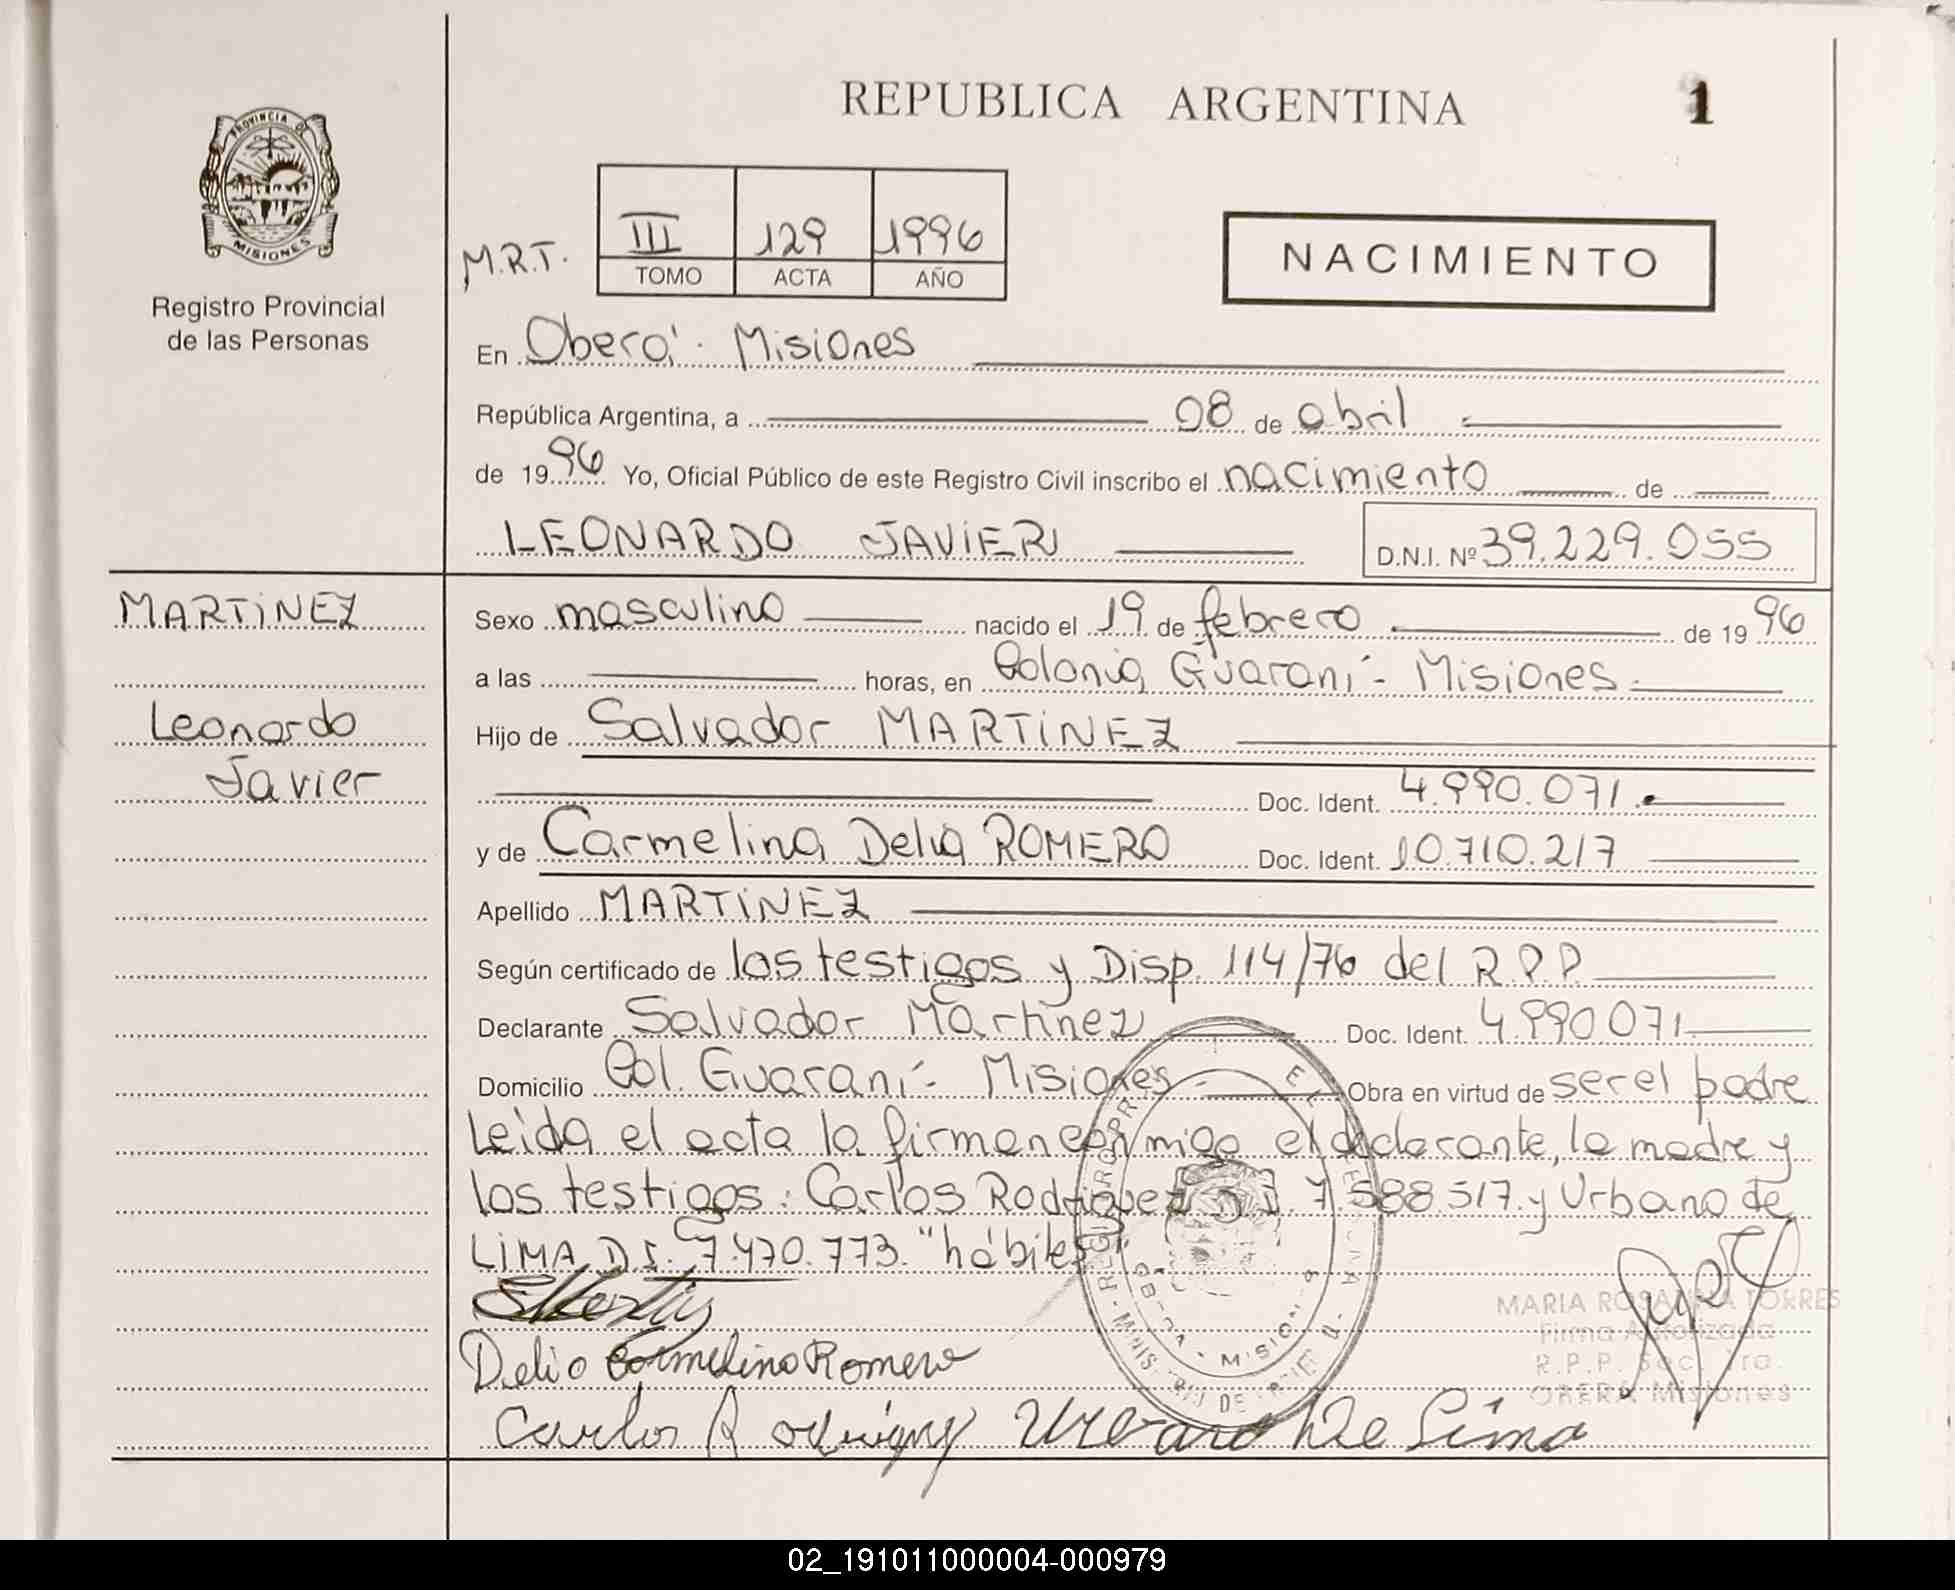 REPUBLICA ARGENTINA
1
PROVINCIA DE
MISIONES
Registro Provincial
de las Personas
M.R.T.
III 129 1996
TOMO ACTA AÑO
NACIMIENTO
En Oberá - Misiones
República Argentina, a 08 de abril
de 1996 Yo, Oficial Público de este Registro Civil inscribo el nacimiento de
LEONARDO JAVIER D.N.I. Nº 39.229.055
MARTINEZ
Leonardo
Javier
Sexo masculino nacido el 19 de febrero de 1996
a las horas, en Colonia Guaraní - Misiones
Hijo de Salvador MARTINEZ
Doc. Ident. 4.990.071.
y de Carmelina Delia ROMERO Doc. Ident. 10.710.217
Apellido MARTINEZ
Según certificado de los testigos y Disp. 114/76 del R.P.P.
Declarante Salvador Martinez Doc. Ident. 4.990.071
Domicilio Col. Guaraní - Misiones Obra en virtud de ser el padre
Leida el acta la firman conmigo el declarante, la madre y
los testigos: Carlos Rodriguez D.I. 7.588.517. y Urbano de
LIMA D.I. 7.470.773. "hábiles"
Delio Carmelina Romero
Carlos Rodriguez Urbano De Lima
MARIA ROSANNA TORRES
Firma Autorizada
R.P.P. Sec. 1ra.
OBERA Misiones
02_191011000004-000979